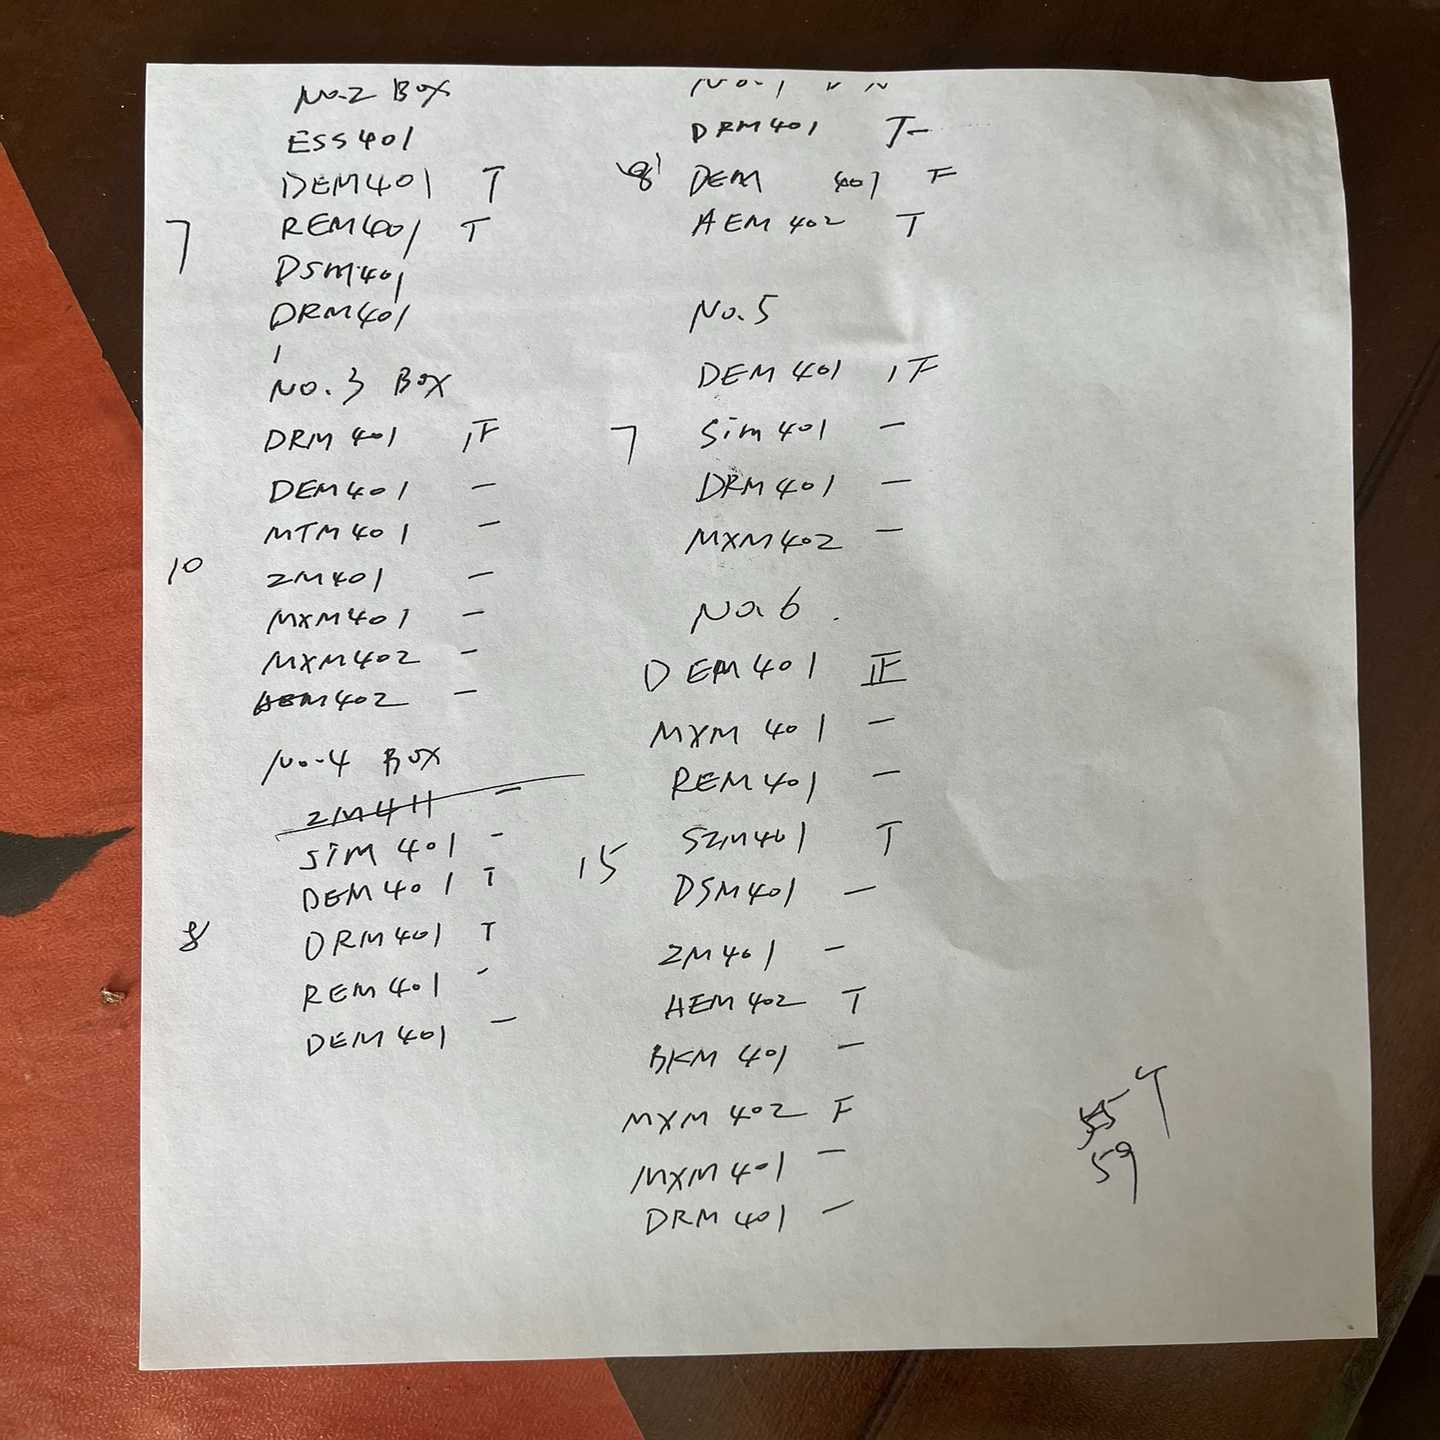 No.2 Box
ESS401
DEM401 T
7 REM401 T
DSM401
DRM401
No.3 Box
DRM401 下
DEM401 一
MTM401 一
10 ZM401 一
MXM401 一
MXM402 一
AEM402 一
No.4 Box
ZM411 一
SIM401 一
DEM401 T
8 DRM401 T
REM401 一
DEM401 一
No.1 〃 〃
DRM401 T
8 DEM 401 下
AEM402 T
No.5
DEM401 正
7 Sim401 一
DRM401 一
MXM402 一
No.6
DEM401 正
MXM401 一
REM401 一
15 SZM401 T
DSM401 一
ZM401 一
AEM402 T
BKM401 一
MXM402 下
MXM401 一
DRM401 一
59